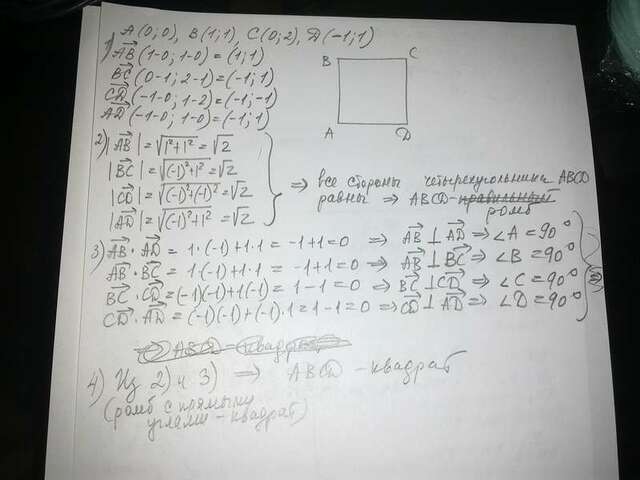 A(0;0), B(1;1), C(0;2), D(-1;1)
1) AB(1-0; 1-0)=(1;1)
BC(0-1; 2-1)=(-1;1)
CD(-1-0; 1-2)=(-1;-1)
AD(-1-0; 1-0)=(-1;1)
B C
A D
2) |AB|=√1²+1²=√2
|BC|=√(-1)²+1²=√2
|CD|=√(-1)²+(-1)²=√2
|AD|=√(-1)²+1²=√2
⇒ все стороны четырехугольника ABCD
равны ⇒ ABCD - правильный
ромб
3) AB·AD = 1·(-1)+1·1 = -1+1=0 ⇒ AB⊥AD ⇒ ∠A=90°
AB·BC = 1·(-1)+1·1 = -1+1=0 ⇒ AB⊥BC ⇒ ∠B=90°
BC·CD=(-1)(-1)+1(-1)=1-1=0 ⇒ BC⊥CD ⇒ ∠C=90°
CD·AD=(-1)(-1)+(-1)·1=1-1=0 ⇒ CD⊥AD ⇒ ∠D=90°
⇒ ABCD - квадрат
4) Из 2) и 3) ⇒ ABCD - квадрат
(ромб с прямыми
углами - квадрат)